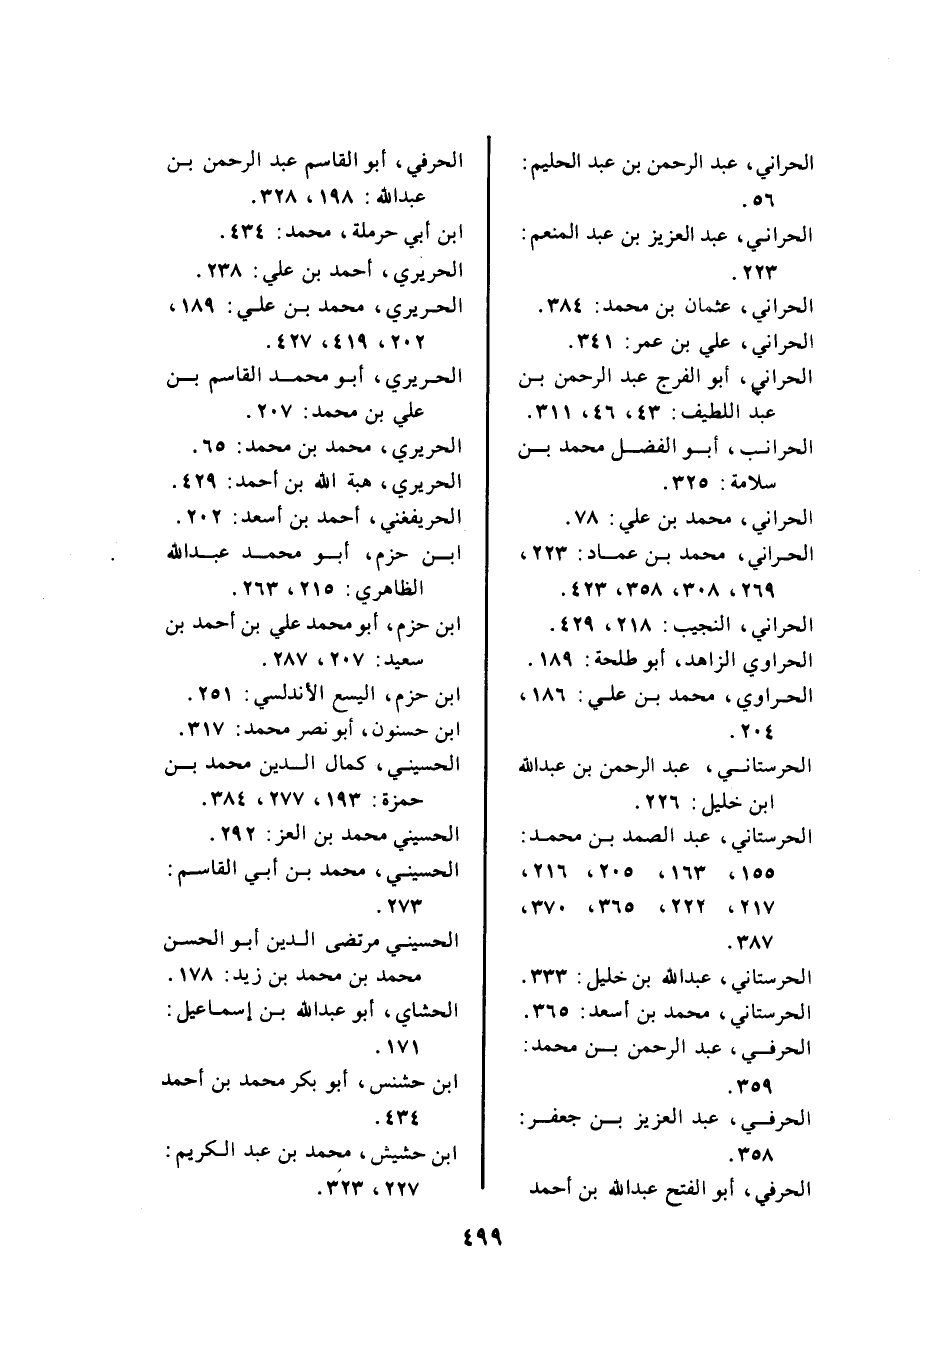 الحراني، عبد الرحمن بن عبد الحليم:
٥٦.
الحراني، عبد العزيز بن عبد المنعم:
٢٢٣.
الحراني، عثمان بن محمد: ٣٨٤.
الحراني، علي بن عمر: ٣٤١.
الحراني، أبو الفرج عبد الرحمن بن
عبد اللطيف: ٤٣، ٤٦، ٣١١.
الحرانب، أبو الفضل محمد بن
سلامة: ٣٢٥.
الحراني، محمد بن علي: ٧٨.
الحراني، محمد بن عماد: ٢٢٣،
٢٦٩، ٣٠٨، ٣٥٨، ٤٢٣.
الحراني، النجيب: ٢١٨، ٤٢٩.
الحراوي الزاهد، أبو طلحة: ١٨٩.
الحراوي، محمد بن علي: ١٨٦،
٢٠٤.
الحرستاني، عبد الرحمن بن عبدالله
ابن خليل: ٢٢٦.
الحرستاني، عبد الصمد بن محمد:
١٥٥، ١٦٣، ٢٠٥، ٢١٦،
٢١٧، ٢٢٢، ٣٦٥، ٣٧٠،
٣٨٧.
الحرستاني، عبدالله بن خليل: ٣٣٣.
الحرستاني، محمد بن أسعد: ٣٦٥.
الحرفي، عبد الرحمن بن محمد:
٣٥٩.
الحرفي، عبد العزيز بن جعفر:
٣٥٨.
الحرفي، أبو الفتح عبدالله بن أحمد
الحرفي، أبو القاسم عبد الرحمن بن
عبدالله: ١٩٨، ٣٢٨.
ابن أبي حرملة، محمد: ٤٣٤.
الحريري، أحمد بن علي: ٢٣٨.
الحريري، محمد بن علي: ١٨٩،
٢٠٢، ٤١٩، ٤٢٧.
الحريري، أبو محمد القاسم بن
علي بن محمد: ٢٠٧.
الحريري، محمد بن محمد: ٦٥.
الحريري، هبة الله بن أحمد: ٤٢٩.
الحريفغني، أحمد بن أسعد: ٢٠٢.
ابن حزم، أبو محمد عبدالله
الظاهري: ٢١٥، ٢٦٣.
ابن حزم، أبو محمد علي بن أحمد بن
سعيد: ٢٠٧، ٢٨٧.
ابن حزم، اليسع الأندلسي: ٢٥١.
ابن حسنون، أبو نصر محمد: ٣١٧.
الحسيني، كمال الدين محمد بن
حمزة: ١٩٣، ٢٧٧، ٣٨٤.
الحسيني محمد بن العز: ٢٩٢.
الحسيني، محمد بن أبي القاسم:
٢٧٣.
الحسيني مرتضى الدين أبو الحسن
محمد بن محمد بن زيد: ١٧٨.
الحشاي، أبو عبدالله بن إسماعيل:
١٧١.
ابن حشنس، أبو بكر محمد بن أحمد
٤٣٤.
ابن حشيش، محمد بن عبد الكريم:
٢٢٧، ٣٢٣.
٤٩٩